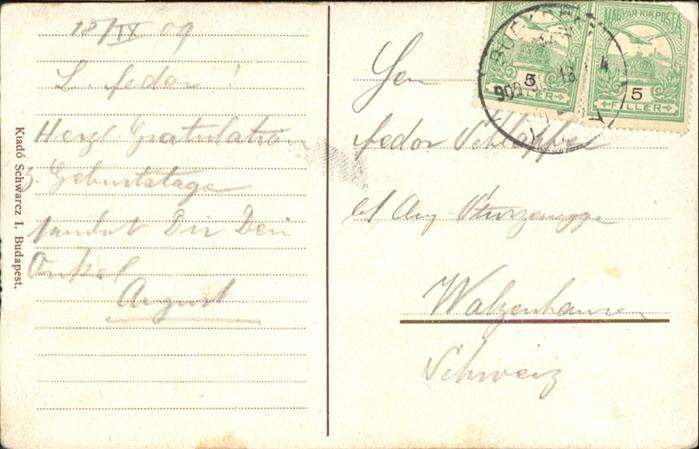 18/IX 09
L. Fedor!
Herzl Gratulation
z. Geburtstage
sendet Dir Dein
Onkel
August
Kiadó Schwarcz I. Budapest.
MAGYAR KIR. POSTA
5 5
FILLÉR FILLÉR
BUDAPEST
909 18 4
Herr
Fedor Schläpfer
Walzenhausen
Schweiz